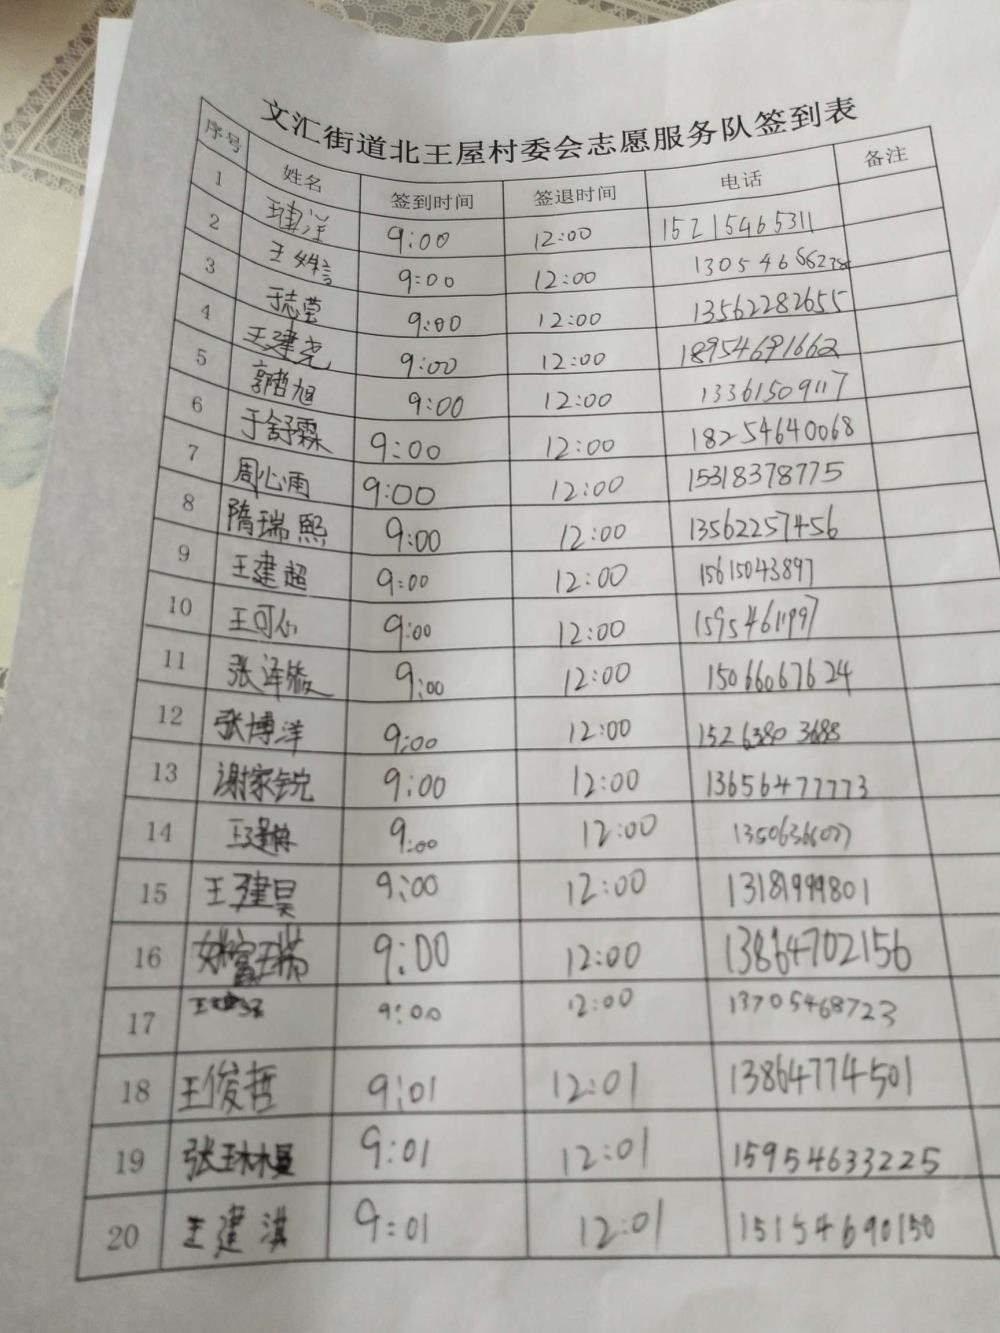 文汇街道北王屋村委会志愿服务队签到表
序号 姓名 签到时间 签退时间 电话 备注
1 9:00 12:00 15215465311
2 王 9:00 12:00
3 于志莹 9:00 12:00 13562282655
4 王建尧 9:00 12:00 18954691662
5 郭哲旭 9:00 12:00 13361509117
6 于舒霖 9:00 12:00 18254640068
7 周心雨 9:00 12:00 15318378775
8 隋瑞熙 9:00 12:00 13562257456
9 王建超 9:00 12:00 15615043897
10 王可心 9:00 12:00 15954611997
11 张泽 9:00 12:00 15066067624
12 张博洋 9:00 12:00 15263803688
13 谢家锐 9:00 12:00 13656477773
14 9:00 12:00
15 王建昊 9:00 12:00 13181999801
16 9:00 12:00 13864702156
17 9:00 12:00 13705468723
18 王俊哲 9:01 12:01 13864774501
19 张琳曼 9:01 12:01 15954633225
20 王建淇 9:01 12:01 15154690150